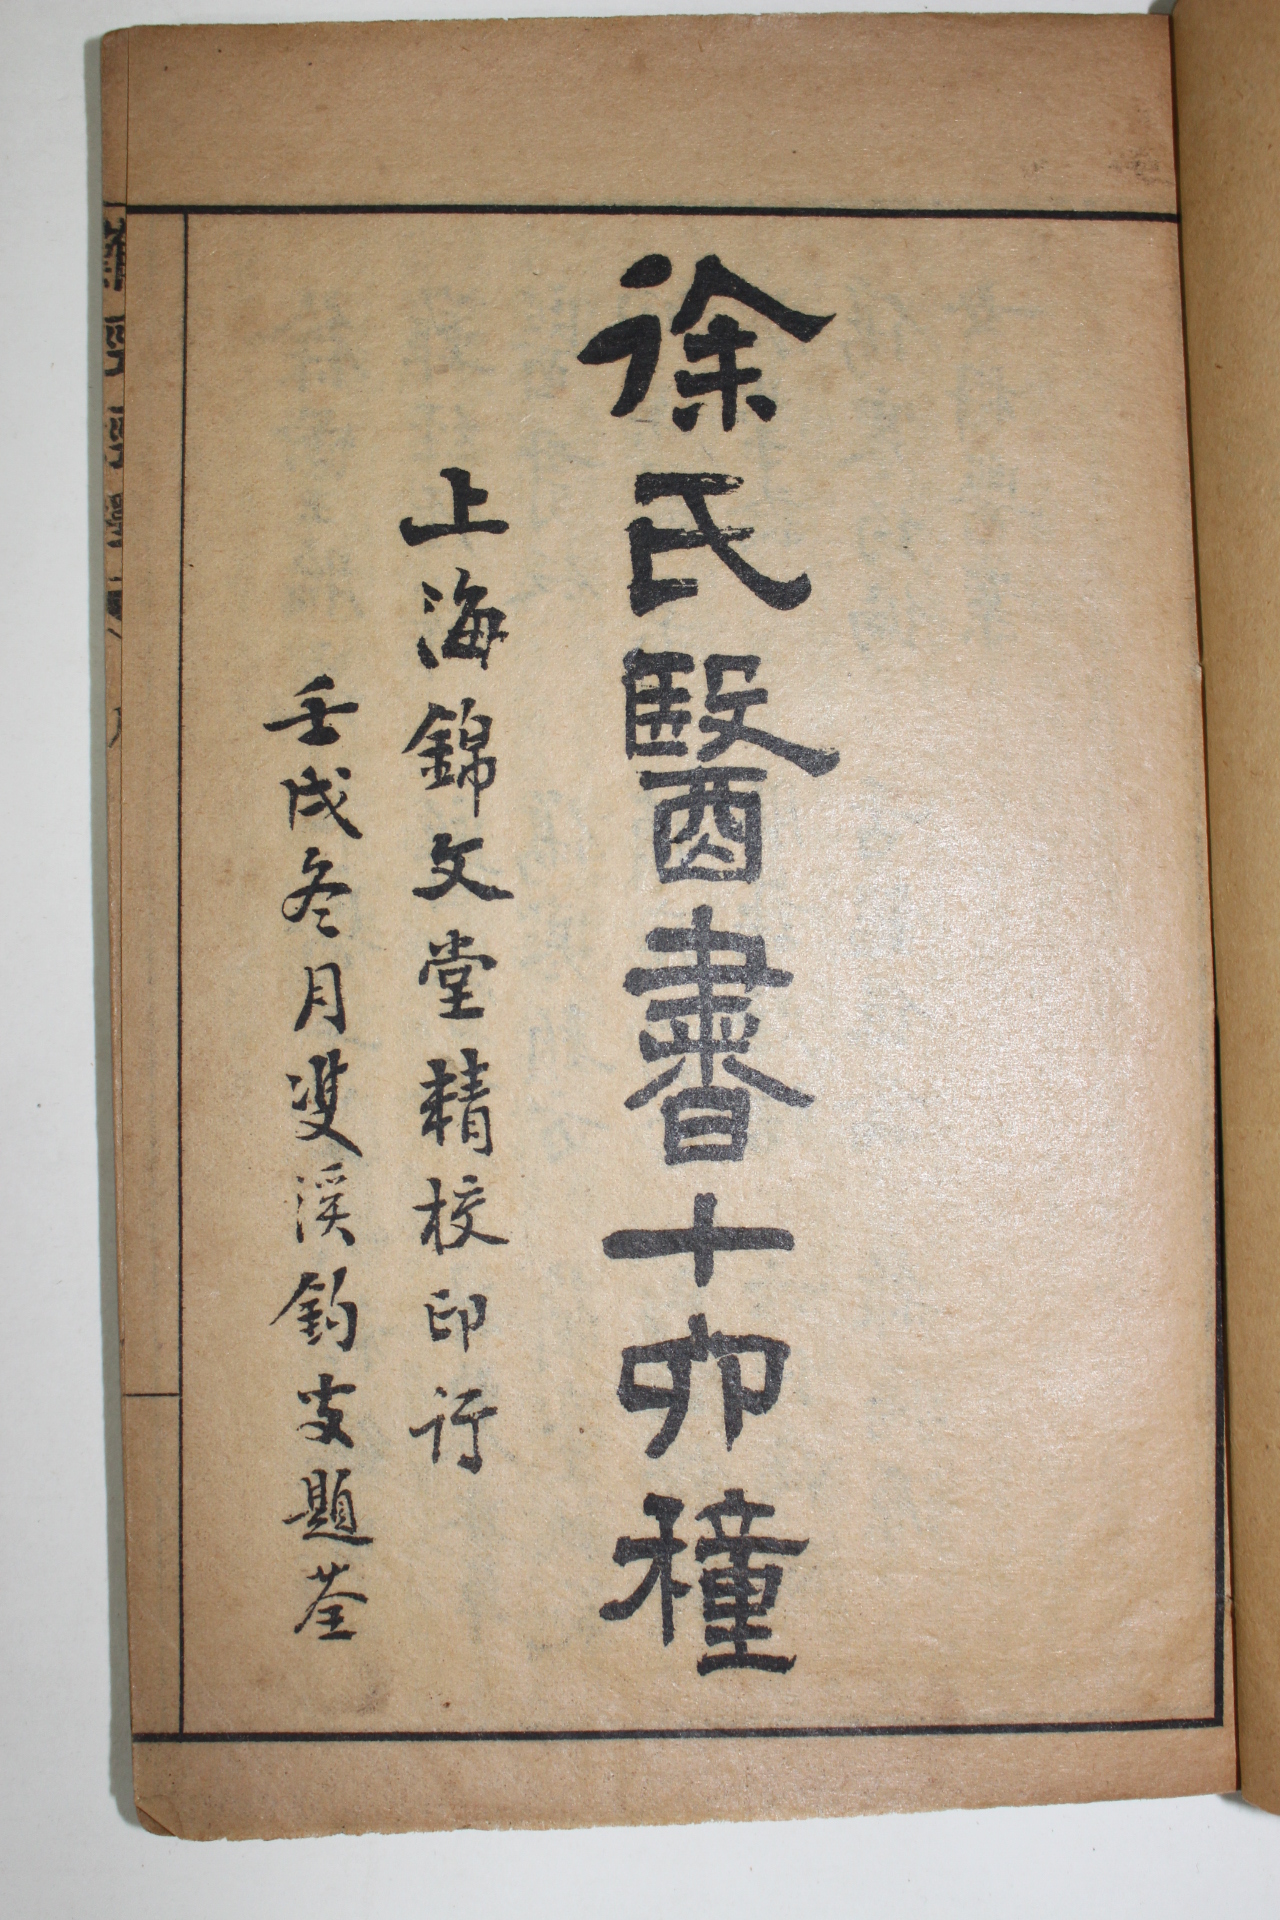 徐氏醫書十卯種
上海錦文堂精校印行
壬戌冬月雙溪釣叟題荃